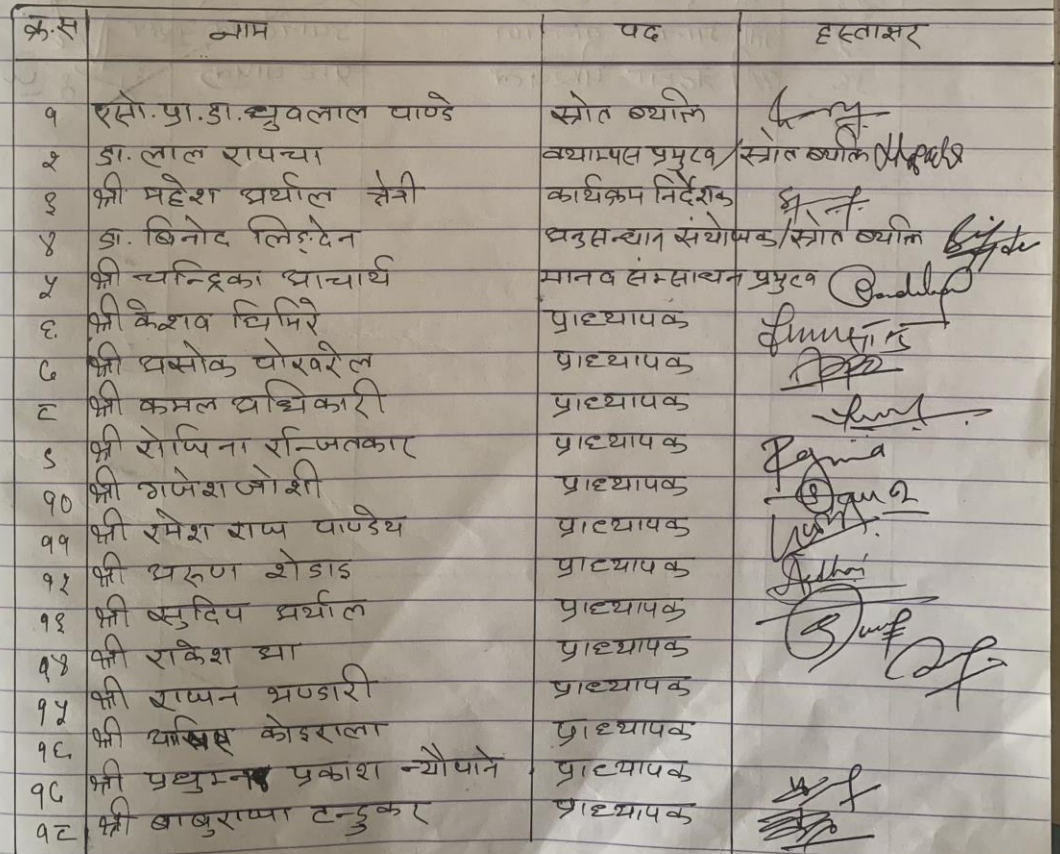 क्र.स नाम पद हस्ताक्षर
१ एसो.प्रा.डा.ध्रुवलाल पाण्डे स्रोत व्यक्ति
२ डा. लाल रापचा क्याम्पस प्रमुख/स्रोत व्यक्ति
३ श्री महेश अर्याल क्षेत्री कार्यक्रम निर्देशक
४ डा. बिनोद लिङ्देन अनुसन्धान संयोजक/स्रोत व्यक्ति
५ श्री चन्द्रिका आचार्य मानव संसाधन प्रमुख
६ श्री केशव घिमिरे प्राध्यापक
७ श्री असोक पोखरेल प्राध्यापक
८ श्री कमल अधिकारी प्राध्यापक
९ श्री रोजिना रन्जितकार प्राध्यापक Rojina
१० श्री गजेश जोशी प्राध्यापक
११ श्री रमेश राज पाण्डेय प्राध्यापक
१२ श्री अरुण शेडाइ प्राध्यापक
१३ श्री सुदिप अर्याल प्राध्यापक
१४ श्री राकेश झा प्राध्यापक
१५ श्री राजन भण्डारी प्राध्यापक
१६ श्री कोइराला प्राध्यापक
१७ श्री प्रधुम्न प्रकाश न्यौपाने प्राध्यापक
१८ श्री बाबुराजा टन्डुकर प्राध्यापक